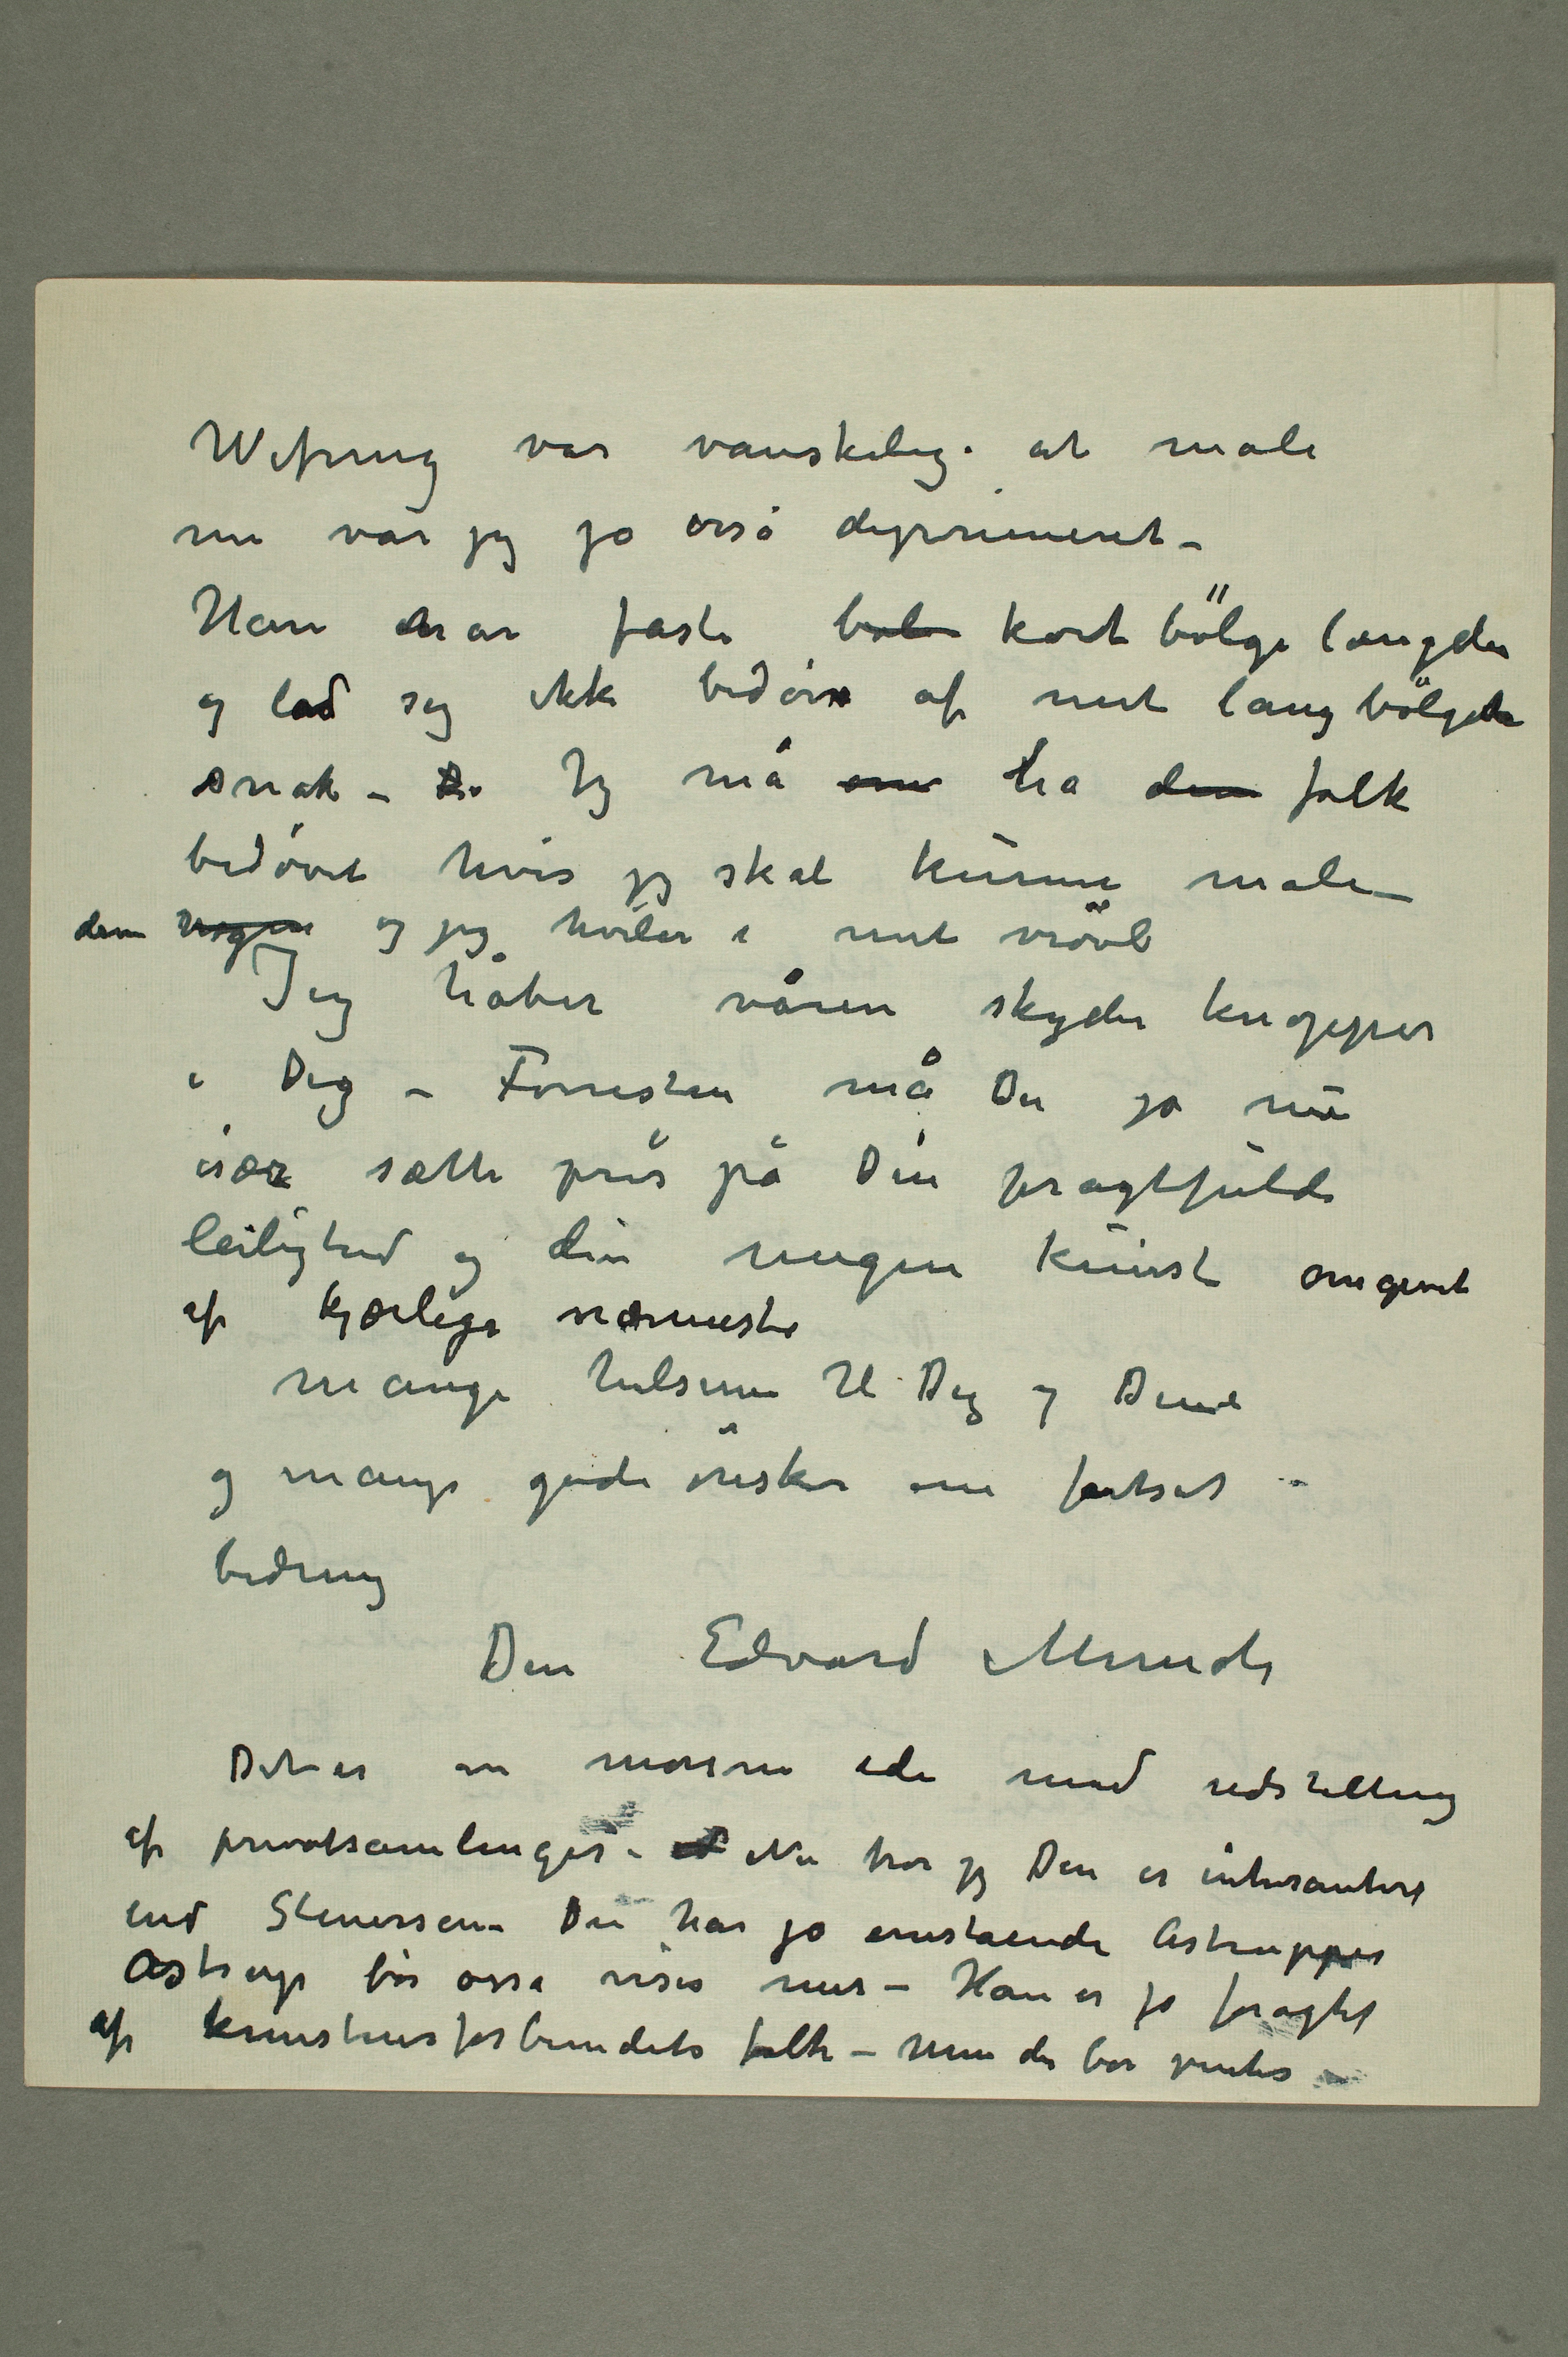 Wefring var vanskelig. at male
nu var jeg jo osså deprimeret –
Han har faste bøl kort bölge længder
og lod seg ikke bedøve af mit lang bölgete
snak – Jeg må om ha dem folk
bedøvet hvis jeg skal kunne male
dem nogen og jeg hviler i mit vrövl
Jeg håber våren skyder knopper
i Dig – Forresten må Du jo nu
især sætte pris på Din pragtfulde
leilighed og din megen kunst omgivet
af kjærlige nærmeste
mange hilsener til Dig og Dine
og mange gode ønsker om fortsat
bedring
Din Edvard Munch
Det er en morsom ide med udstilling
af privatsamlinger. Nu tror jeg Din er interesantere
end Stenersen. Du har jo enestaaende Astrupper
Astrup bør ossa vises mer – Han er jo foragtet
af kunstnerforbundets folk – men de bør